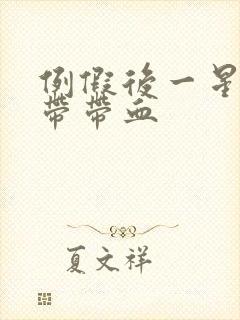 例假後一星
帶帶血
夏文祥